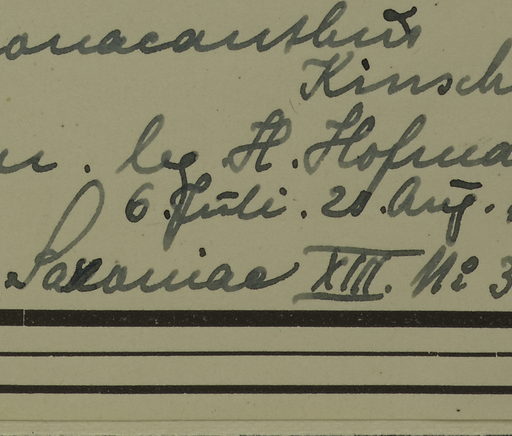 onacanthus
Kirsch
leg. H. Hofma
6. Juli. 20. Aug.
Saxoniae XIII. No 3